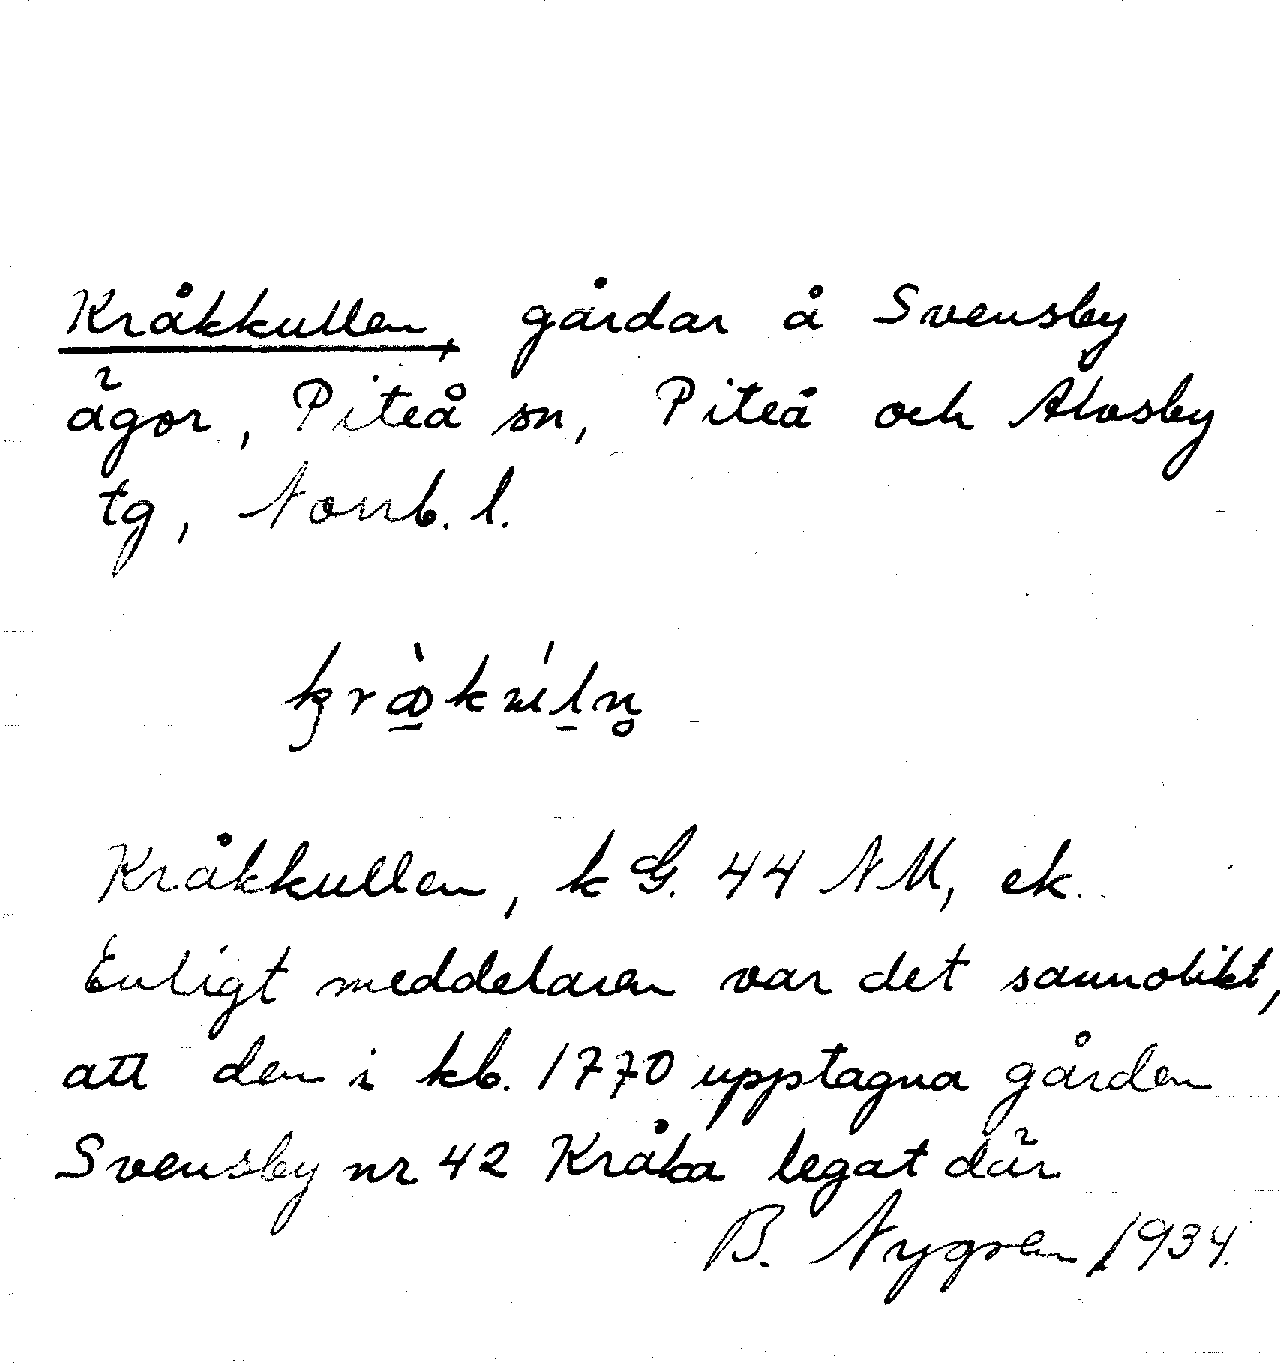 Kråkkullen, gårdar å Svensby
ägor, Piteå sn, Piteå och Älvsby
tg, Norrb. l.
Kråkkullen, k G. 44 NM, ek.
Enligt meddelaren var det sannolikt,
att den i kb. 1770 upptagna gården
Svensby nr 42 Kråka legat där
B. Nygren 1934.